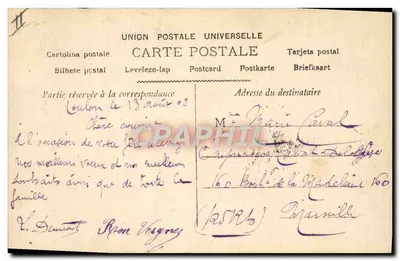 II
UNION POSTALE UNIVERSELLE
Cartolina postale CARTE POSTALE Tarjeta postal
Bilhete postal Levelezo-lap Postcard Postkarte Briefkaart
Partie réservée à la correspondance
Adresse du destinataire
Toulon le 13 Août 03
Chère amie
A l'occasion de votre fête recevez
nos meilleurs vœux et nos meilleurs
souhaits ainsi que de toute la
famille.
Rose
Marie Caval
160 Boul de la Madeleine 160
Marseille